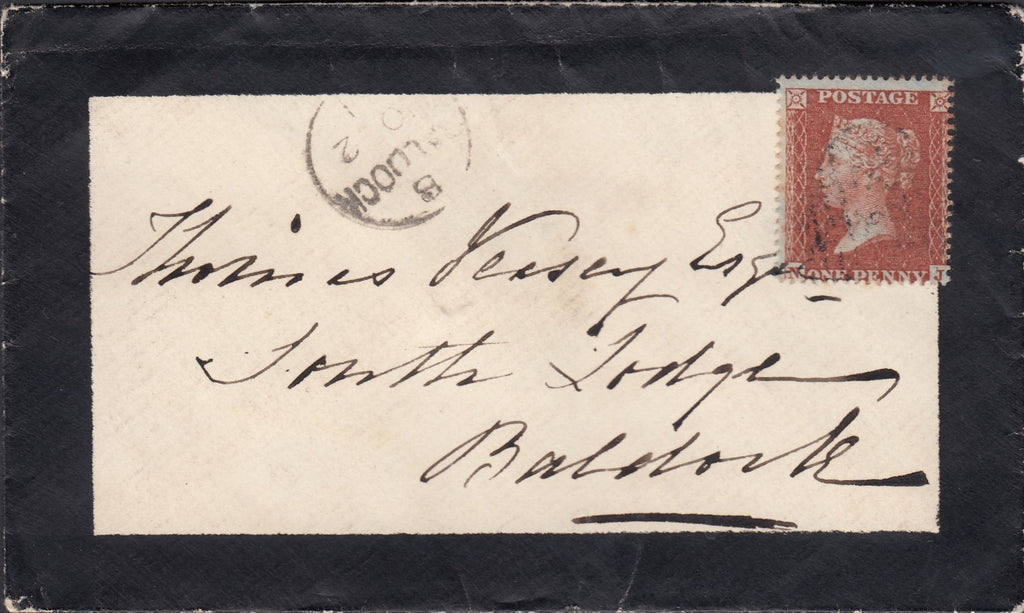 POSTAGE
ONE PENNY
B
Thomas Veasey Esqr
South Lodge
Baldock